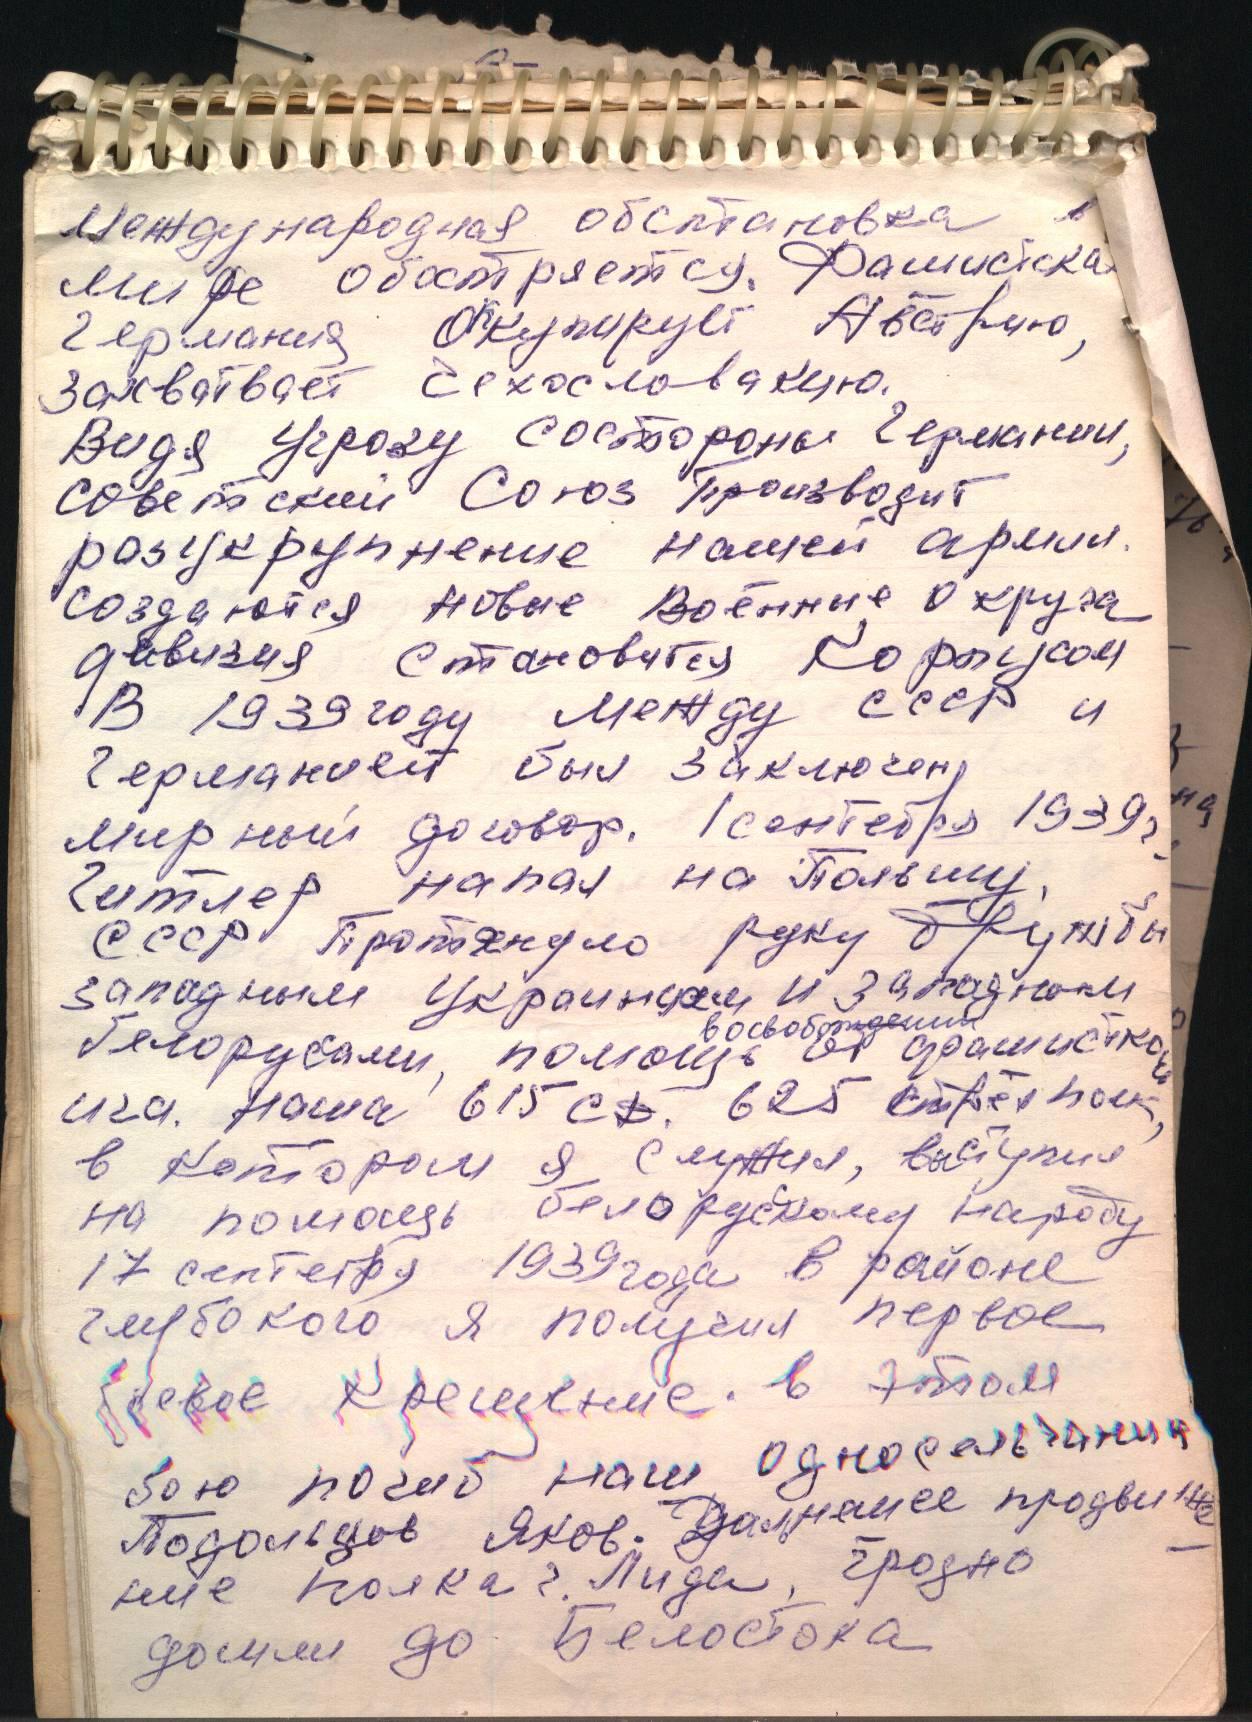 Международная обстановка в
мире обостряется. Фашистская
Германия Оккупирует Австрию,
захватвает Чехословакию.
Видя угрозу состороны Германии,
советский Союз Производит
розукрупнение нашей армии.
создаются новые Военные округа
дивизия становится Корпусом
В 1939 году между СССР и
Германией был заключен
мирный договор. 1 сентебря 1939 г.
Гитлер напал на Польшу.
СССР Протянуло руку дружбы
западным Украинцам и западным
белорусами, помощь в освобождении от фашисткого
ига. Наша 615 сд. 625 стрел полк,
в котором я служил, выступил
на помощь белорускому народу
17 септебря 1939 года в районе
глубокого я получил первое
боевое крещение. в этом
бою погиб наш односельчанин
Подольцов Яков. Далнешее продвиже-
ние полка г. Лида, гродно
дошли до Белостока